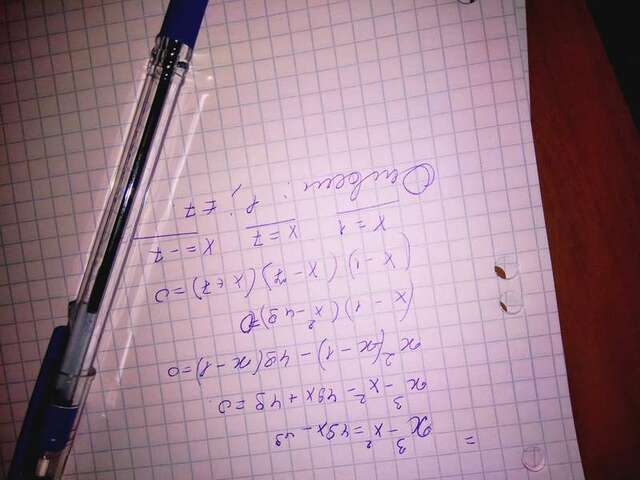 x³ - x² = 49x - 49
x³ - x² - 49x + 49 = 0
x²(x - 1) - 49(x - 1) = 0
(x - 1)(x² - 49) = 0
(x - 1)(x - 7)(x + 7) = 0
x = 1 x = 7 x = -7
Ответ: 1; ±7